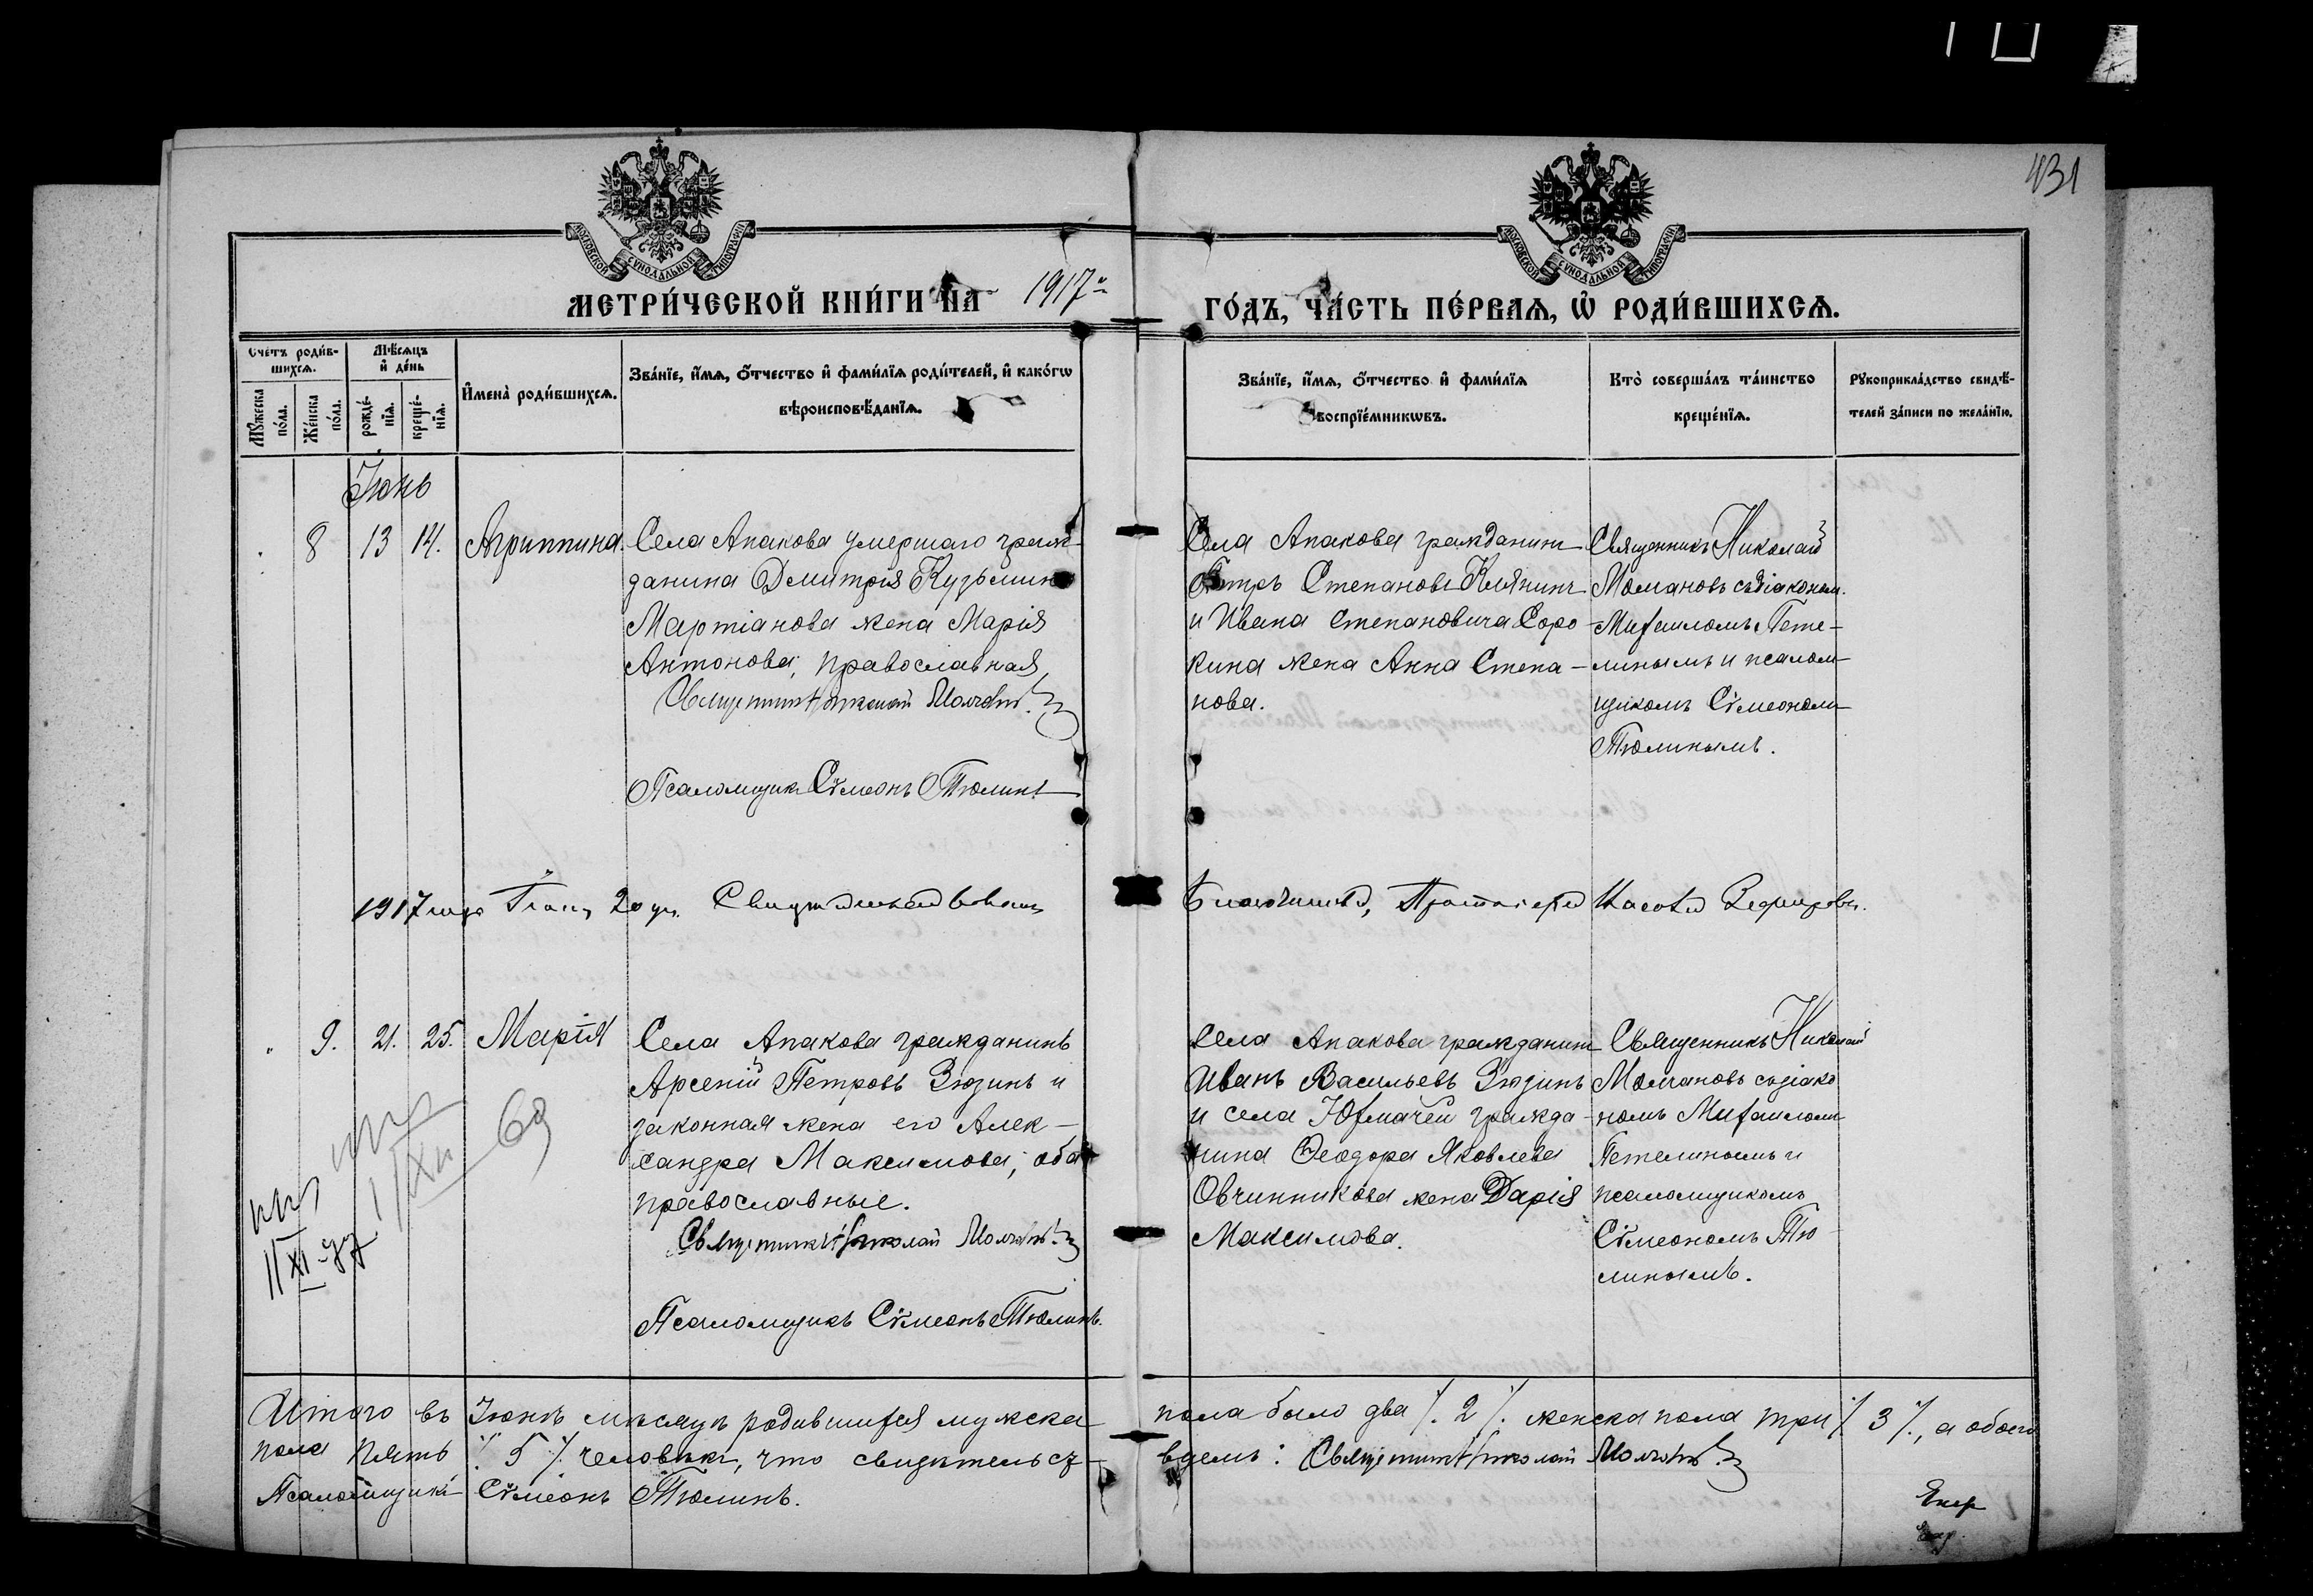 431
МОСКОВСКОЙ СѴНОДАЛЬНОЙ ТИПОГРАФІИ
МОСКОВСКОЙ СѴНОДАЛЬНОЙ ТИПОГРАФІИ
МЕТРИ́ЧЕСКОЙ КНИ́ГИ НА 1917й ГО́ДЪ, ЧА́СТЬ ПЕ́РВАѦ, Ѡ҆ РОДИ́ВШИХСѦ.
Счетъ роди́в-
шихсѧ.
Мꙋжеска
по́ла.
Же́нска
по́ла.
Мѣсѧцъ
и҆ де́нь
рожде́-
нїѧ.
креще́-
нїѧ.
И҆мена̀ роди́вшихсѧ.
Зва́нїе, и҆́мѧ, ѻ҆́тчество и҆ фами́лїѧ роди́телей, и҆ како́гѡ
вѣроисповѣ́данїѧ.
Зва́нїе, и҆́мѧ, ѻ҆́тчество и҆ фами́лїѧ
воспрїе́мникѡвъ.
Кто̀ соверша́лъ та́инство
креще́нїѧ.
Рꙋкоприкла́дство свидѣ́-
телей за́писи по жела́нїю.
Іюнь
8 13 14. Агриппина.
Села Апакова умершаго граж-
данина Димитрія Кузьмина
Мартіанова жена Марія
Антонова, православная,
Священникъ Николай Молчановъ.
Псаломщикъ Сѵмеонъ Тюлинъ
Села Апакова гражданинъ
Петръ Степановъ Клянинъ
и Ивана Степановича Соро-
кина жена Анна Степа-
нова.
Священникъ Николай
Молчановъ съ діакономъ
Михаиломъ Пете-
линымъ и псалом-
щикомъ Сѵмеономъ
Тюлинымъ.
1917 года 20 дн. Свидѣтельствовалъ Благочинный, Протоіерей
" 9. 21. 25. Марія
Села Апакова гражданинъ
Арсеній Петровъ Зюзинъ и
законная жена его Алек-
сандра Максимова, оба
православные.
Священникъ Николай Молчановъ.
Псаломщикъ Сѵмеонъ Тюлинъ.
Села Апакова гражданинъ
Иванъ Васильевъ Зюзинъ
и села Юхмачей гражда-
нина Ѳеодора Яковлева
Овчинникова жена Дарія
Максимова.
Священникъ Николай
Молчановъ съ діако
номъ Михаиломъ
Петелинымъ и
псаломщикомъ
Сѵмеономъ Тю-
линымъ.
XII 69
11 XI
Итого въ Іюнѣ мѣсяцѣ родившихся мужска пола было два ./. 2 ./. женска пола три ./. 3 ./., а обоего
пола пять ./. 5 ./. человѣкъ, что свидѣтельст-вуемъ: Священникъ Николай Молчановъ.
Псаломщикъ Сѵмеонъ Тюлинъ.